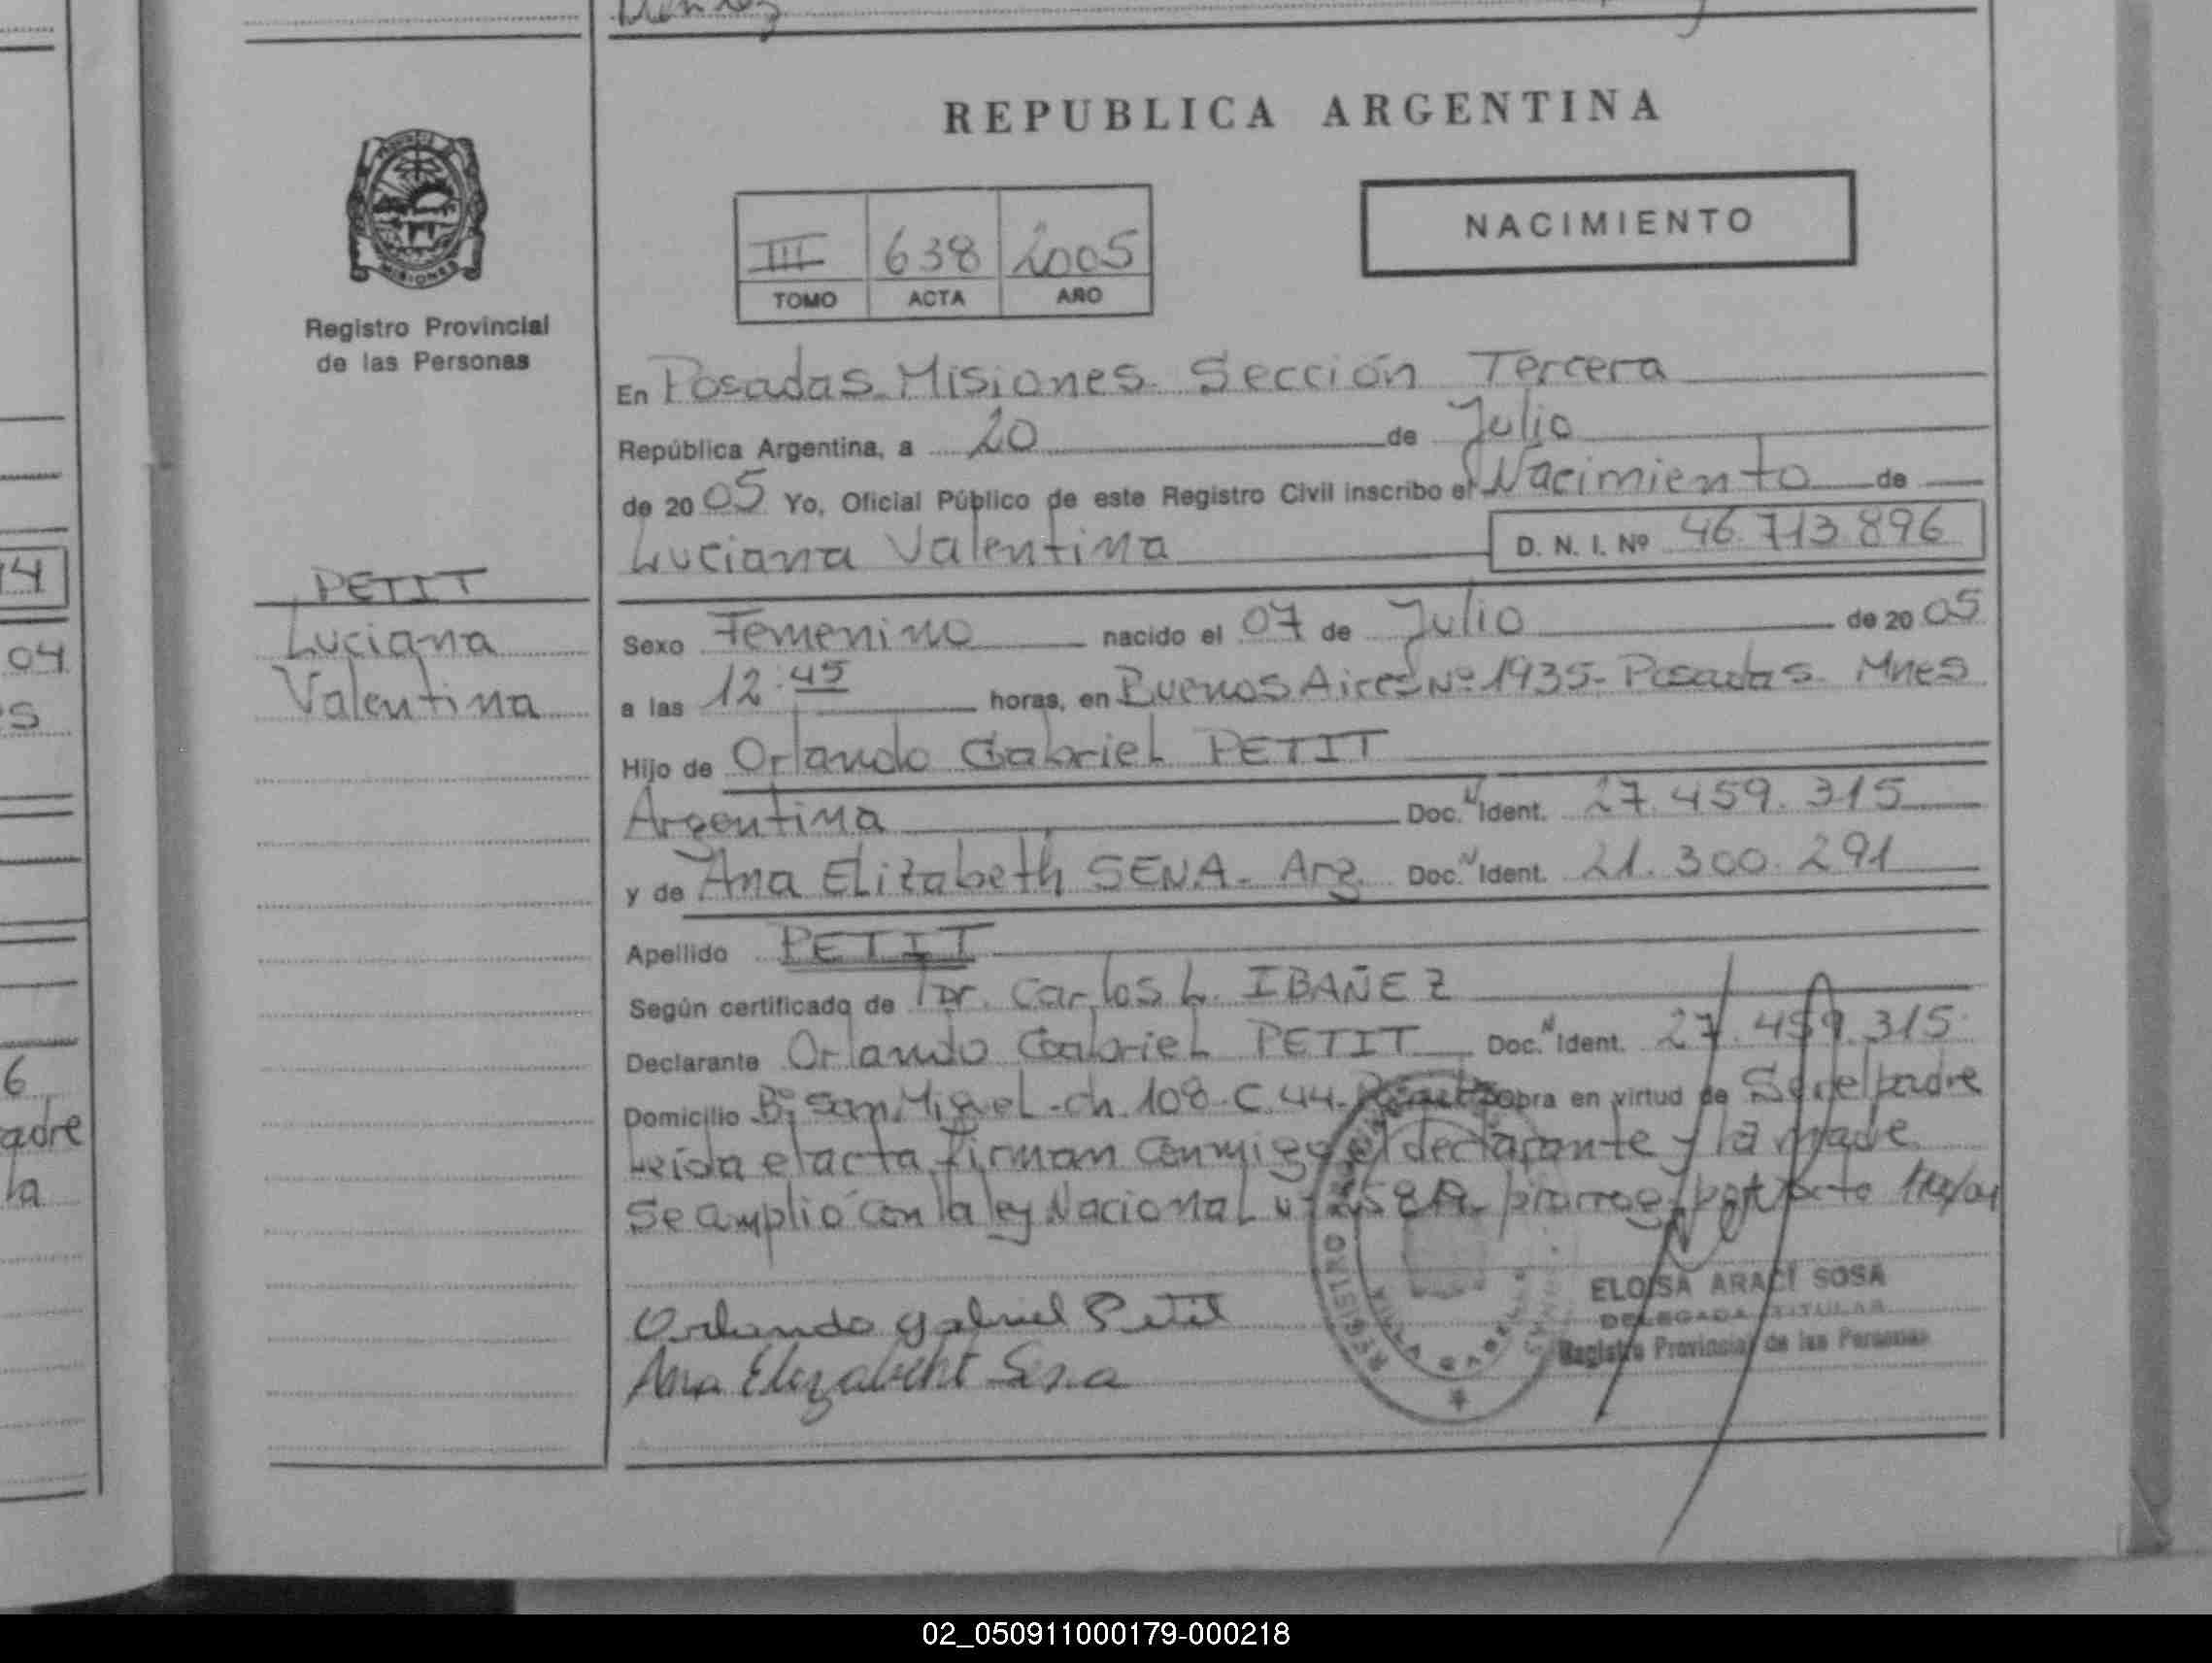 REPUBLICA ARGENTINA
NACIMIENTO
III 638 2005
TOMO ACTA AÑO
MISIONES
Registro Provincial
de las Personas
En Posadas Misiones Sección Tercera
República Argentina, a 20 de Julio
de 2005 Yo, Oficial Público de este Registro Civil inscribo el Nacimiento de
Luciana Valentina D. N. I. Nº 46.713.896
PETIT
Luciana
Valentina
Sexo Femenino nacido el 07 de Julio de 2005
a las 12:45 horas, en Buenos Aires Nº 1935- Posadas Mnes
Hijo de Orlando Gabriel PETIT
Argentina Doc. N Ident. 27.459.315
y de Ana Elizabeth SENA- Arg. Doc. N Ident. 21.300.291
Apellido PETIT
Según certificado de Dr. Carlos L. IBAÑEZ
Declarante Orlando Gabriel PETIT Doc. N Ident. 27.459.315
Domicilio Bº San Miguel -ch. 108-C.44- obra en virtud de Ser el padre
Leída el acta firman conmigo el declarante y la madre
Se amplió con la ley Nacional
Orlando Gabriel Petit
Ana Elizabeht Sena
REGISTRO
VILLA
ELOISA ARACI SOSA
DELEGADA TITULAR
Registro Provincial de las Personas
14
04
s
6
adre
la
02_050911000179-000218